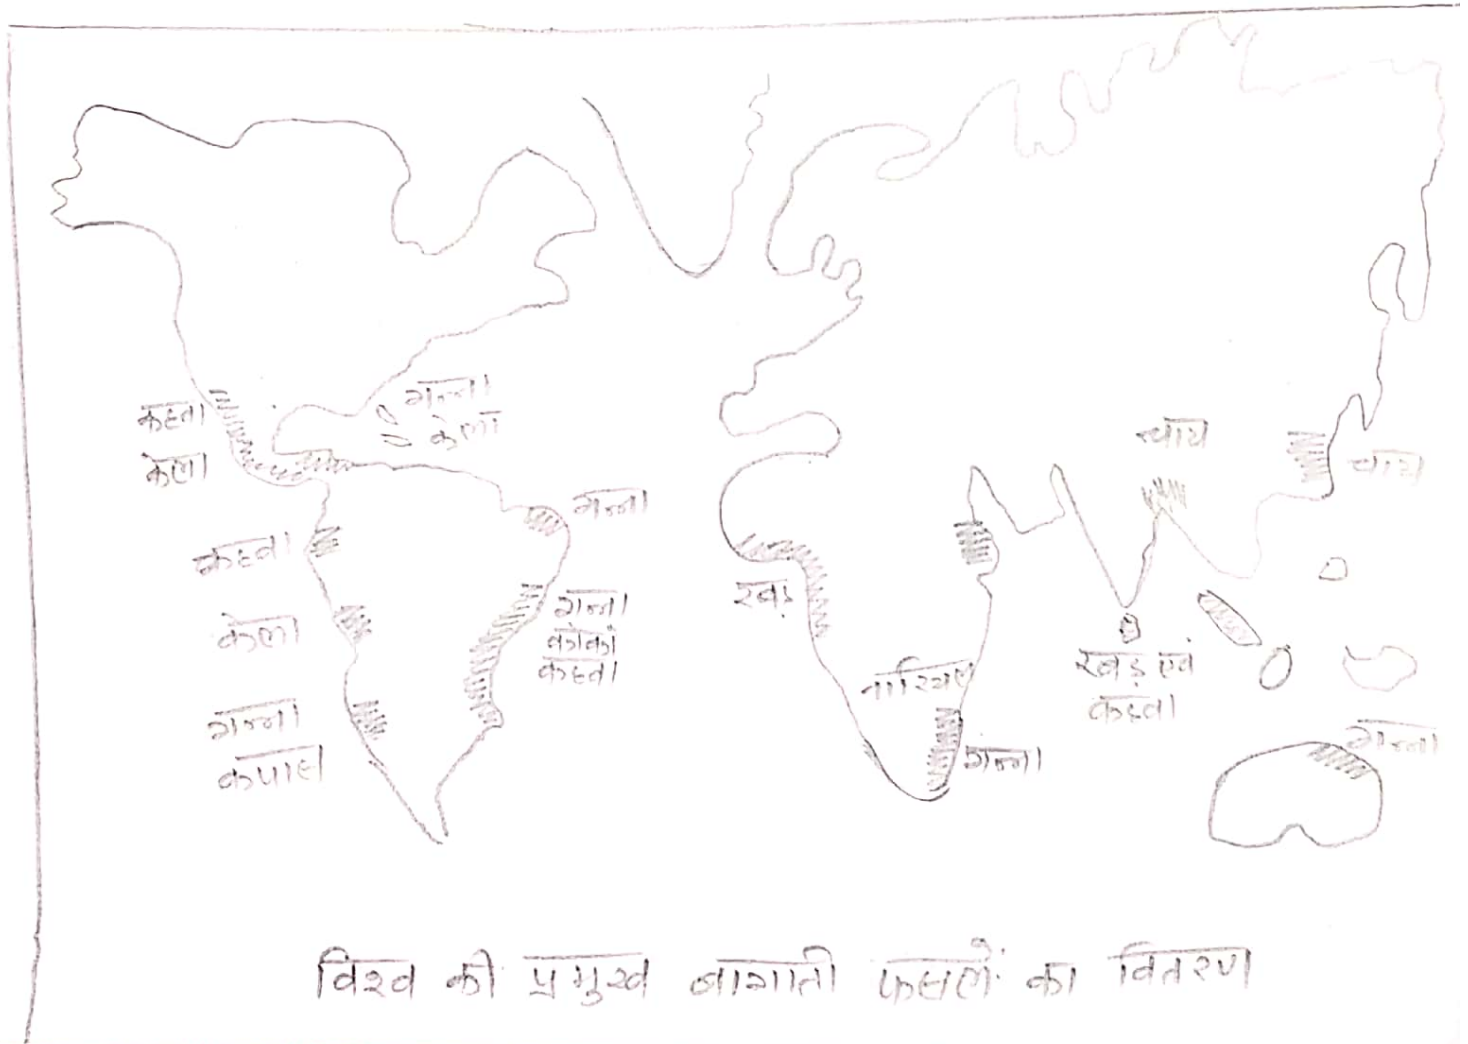 कहवा
केला
गन्ना
केला
कहवा
केला
गन्ना
कपास
गन्ना
गन्ना
कोको
कहवा
रबड़
नारियल
गन्ना
चाय
चाय
रबड़ एवं
कहवा
गन्ना
विश्व की प्रमुख बागाती फसलों का वितरण